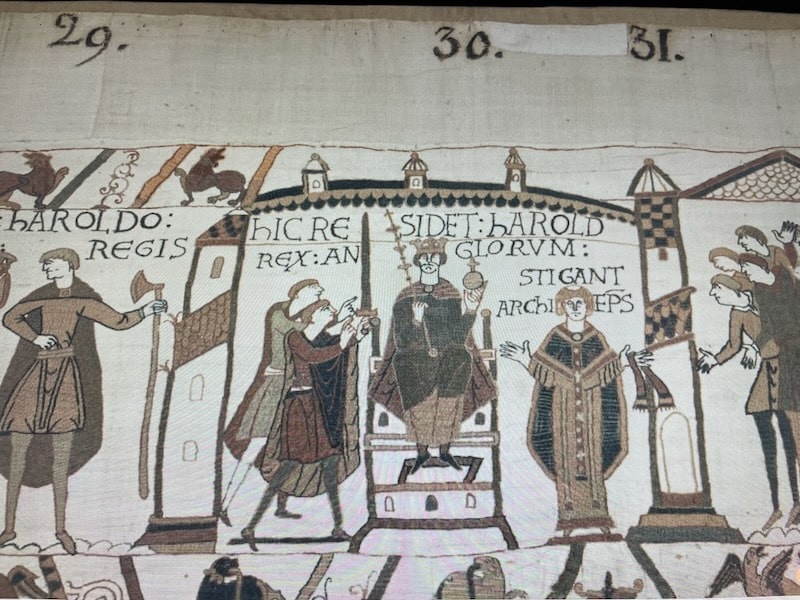 29. 30. 31.
:hAROLDO:
REGIS
hIC RE SIDET: hAROLD
REX: AN GLORVM:
STIGANT
ARChI EPS